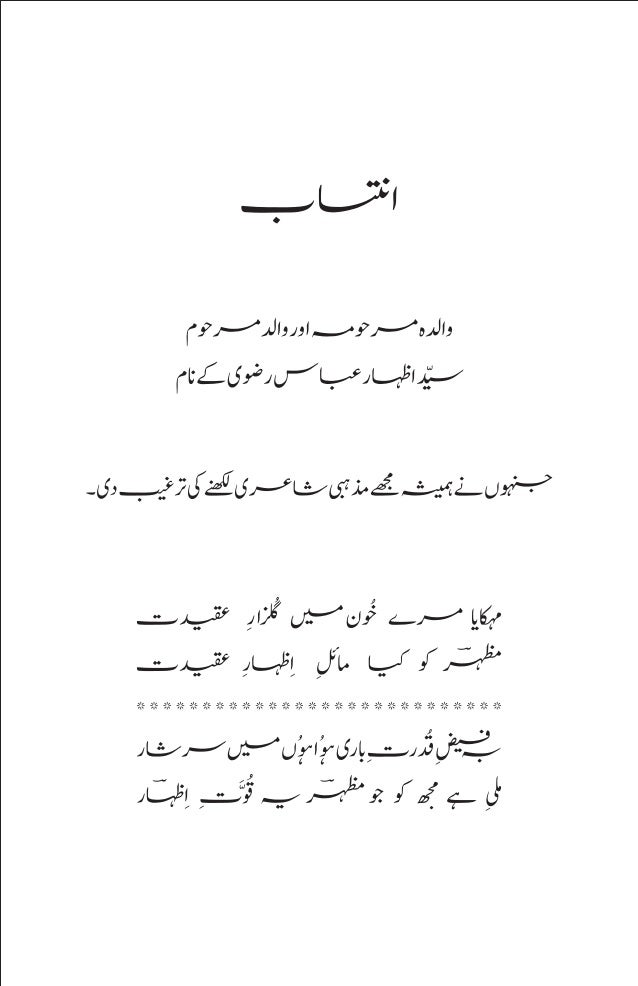 انتساب
والدہ مرحومہ اور والد مرحوم
سیّد اظہار عباس رضوی کے نام
جنہوں نے ہمیشہ مجھے مذہبی شاعری لکھنے کی ترغیب دی۔
مہکایا مرے خُون میں گُلزارِ عقیدت
مظہرؔ کو کیا مائلِ اِظہارِ عقیدت
بہ فیضِ قُدرتِ باری ہُوا ہُوں میں سرشار
ملی ہے مجھ کو جو مظہرؔ یہ قُوَّتِ اِظہارؔ